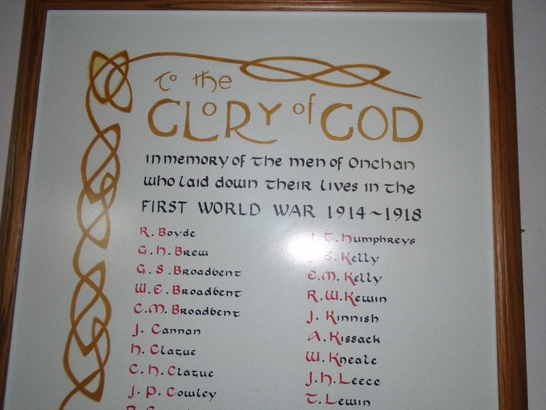 to the
GLORY of GOD
in memory of the men of Onchan
who laid down their lives in the
FIRST WORLD WAR 1914~1918
R. Boyde
G. H. Brew
G. S. Broadbent
W. E. Broadbent
C. M. Broadbent
J. Cannan
H. Clague
C. H. Clague
J. P. Cowley
T. Humphreys
S. Kelly
E. M. Kelly
R. W. Kewin
J. Kinnish
A. Kissack
W. Kneale
J. H. Leece
T. Lewin